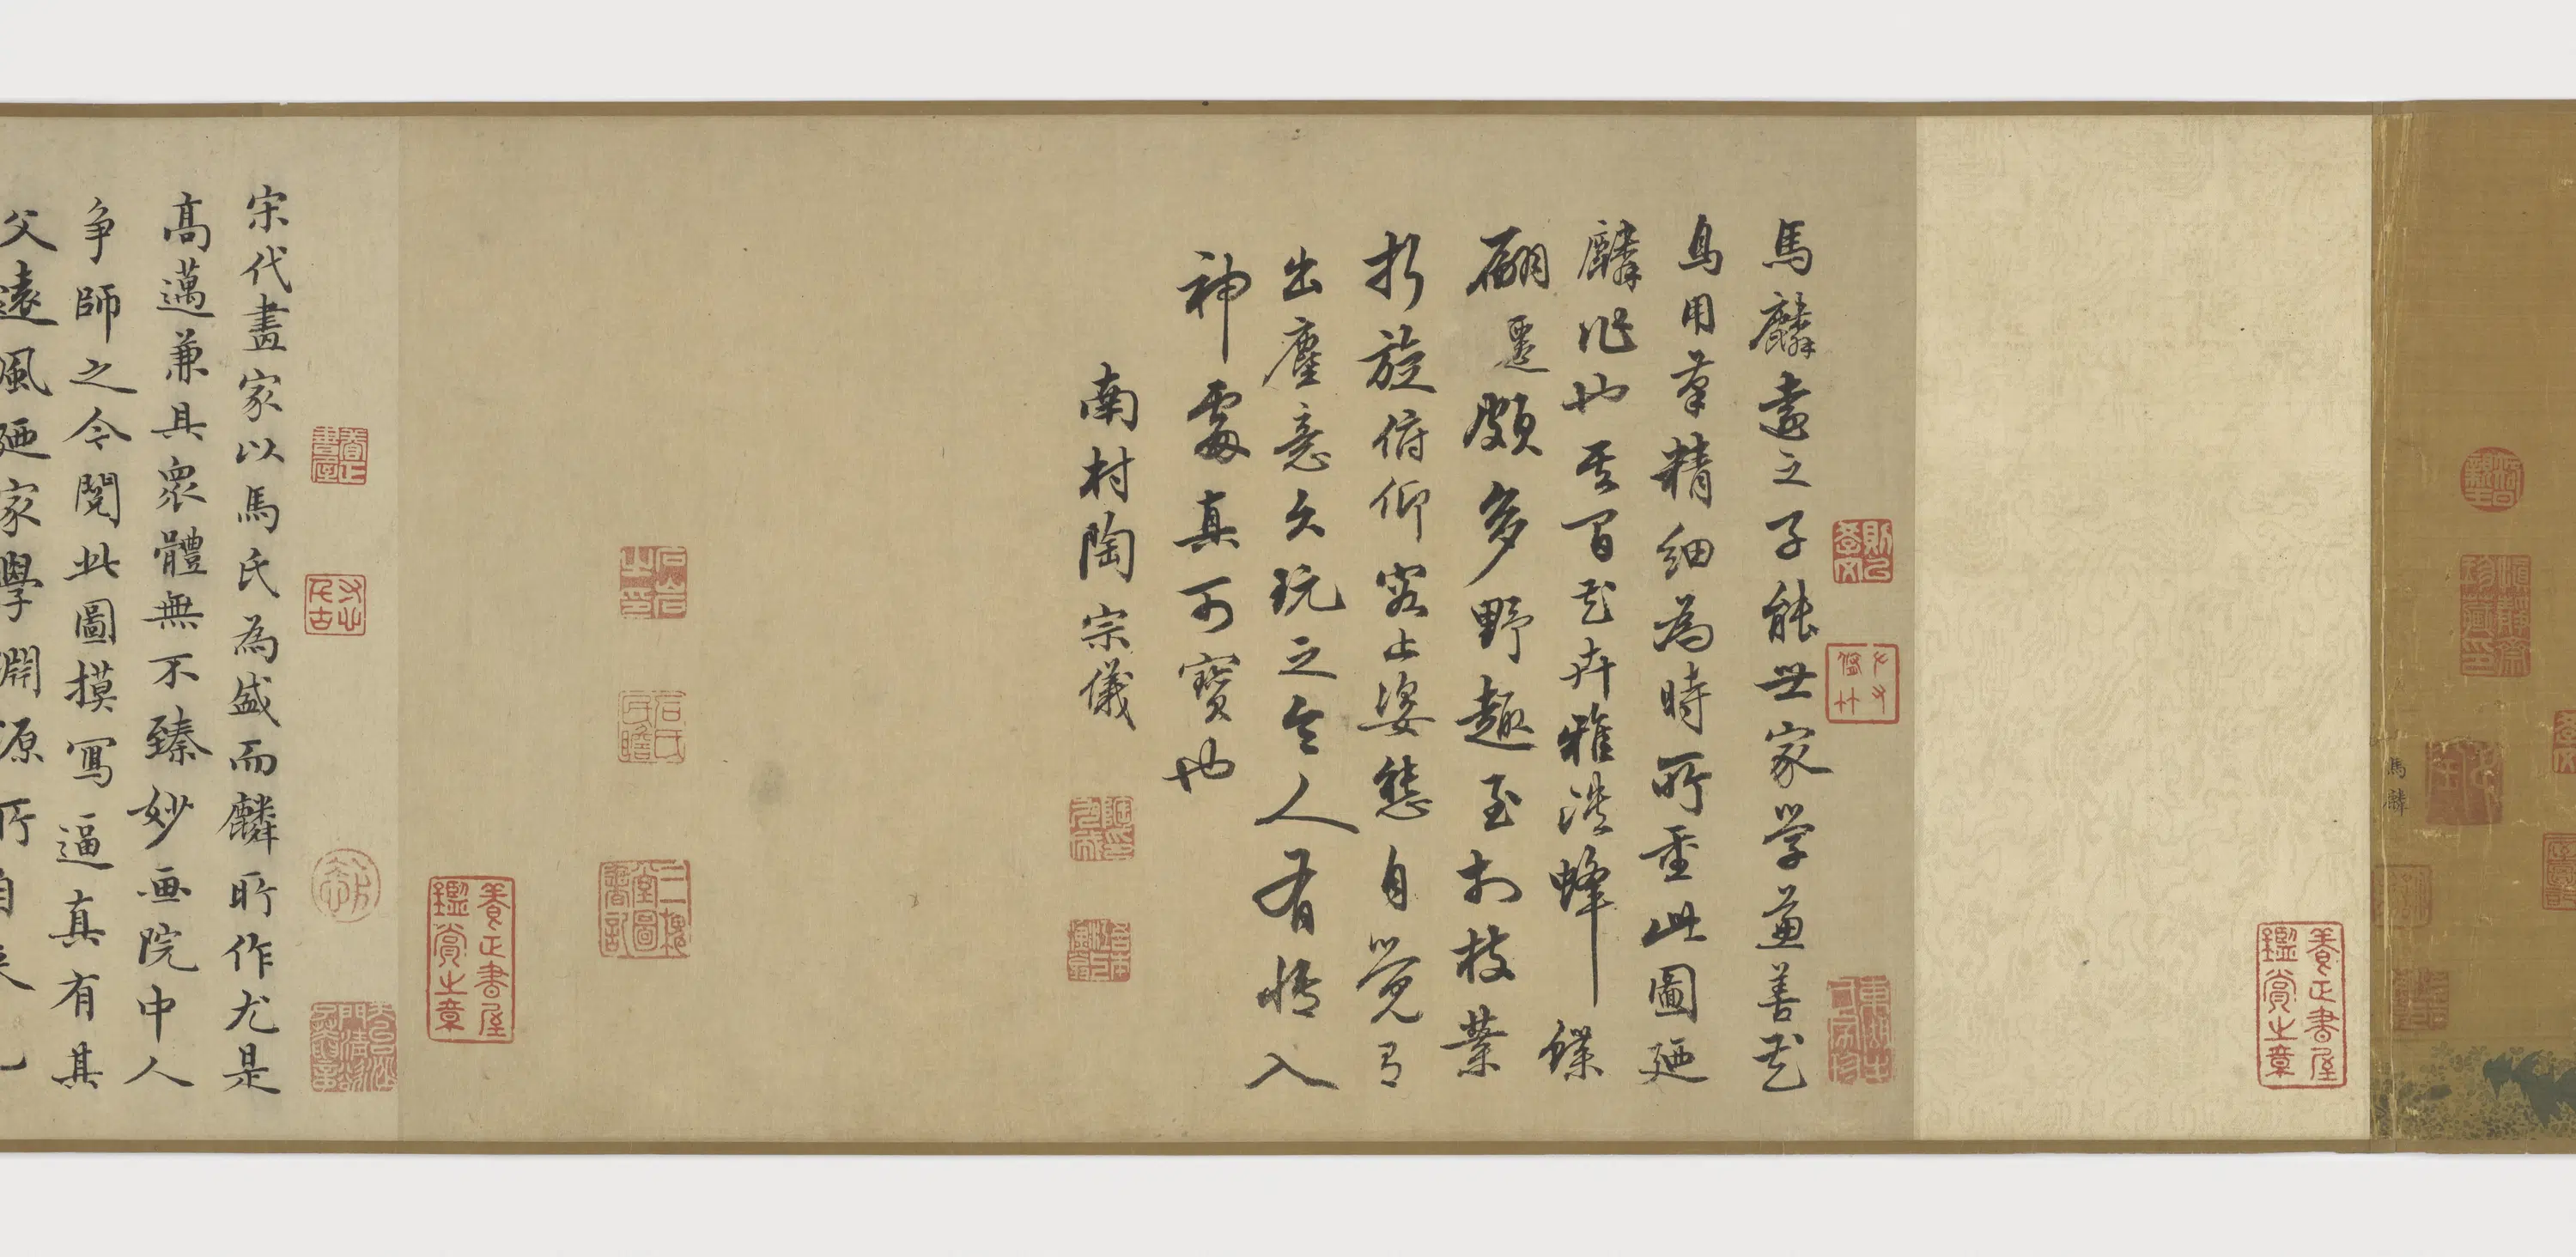 馬麟
養正書屋
鑑賞之章
馬麟遠之子能世家学兼善花
鳥用筆精細為時所重此圖廼
麟作也其間花卉雅淡蜂蝶
翩躚頗多野趣至於枝葉
折旋俯仰容止姿態自覺有
出塵意久玩之令人有悟入
神處真可寶也
南村陶宗儀
養正書屋
鑑賞之章
宋代畫家以馬氏為盛而麟所作尤是
高邁兼具衆體無不臻妙画院中人
争師之今閱此圖摸寫逼真有其
父遠風廼家學淵源所自来